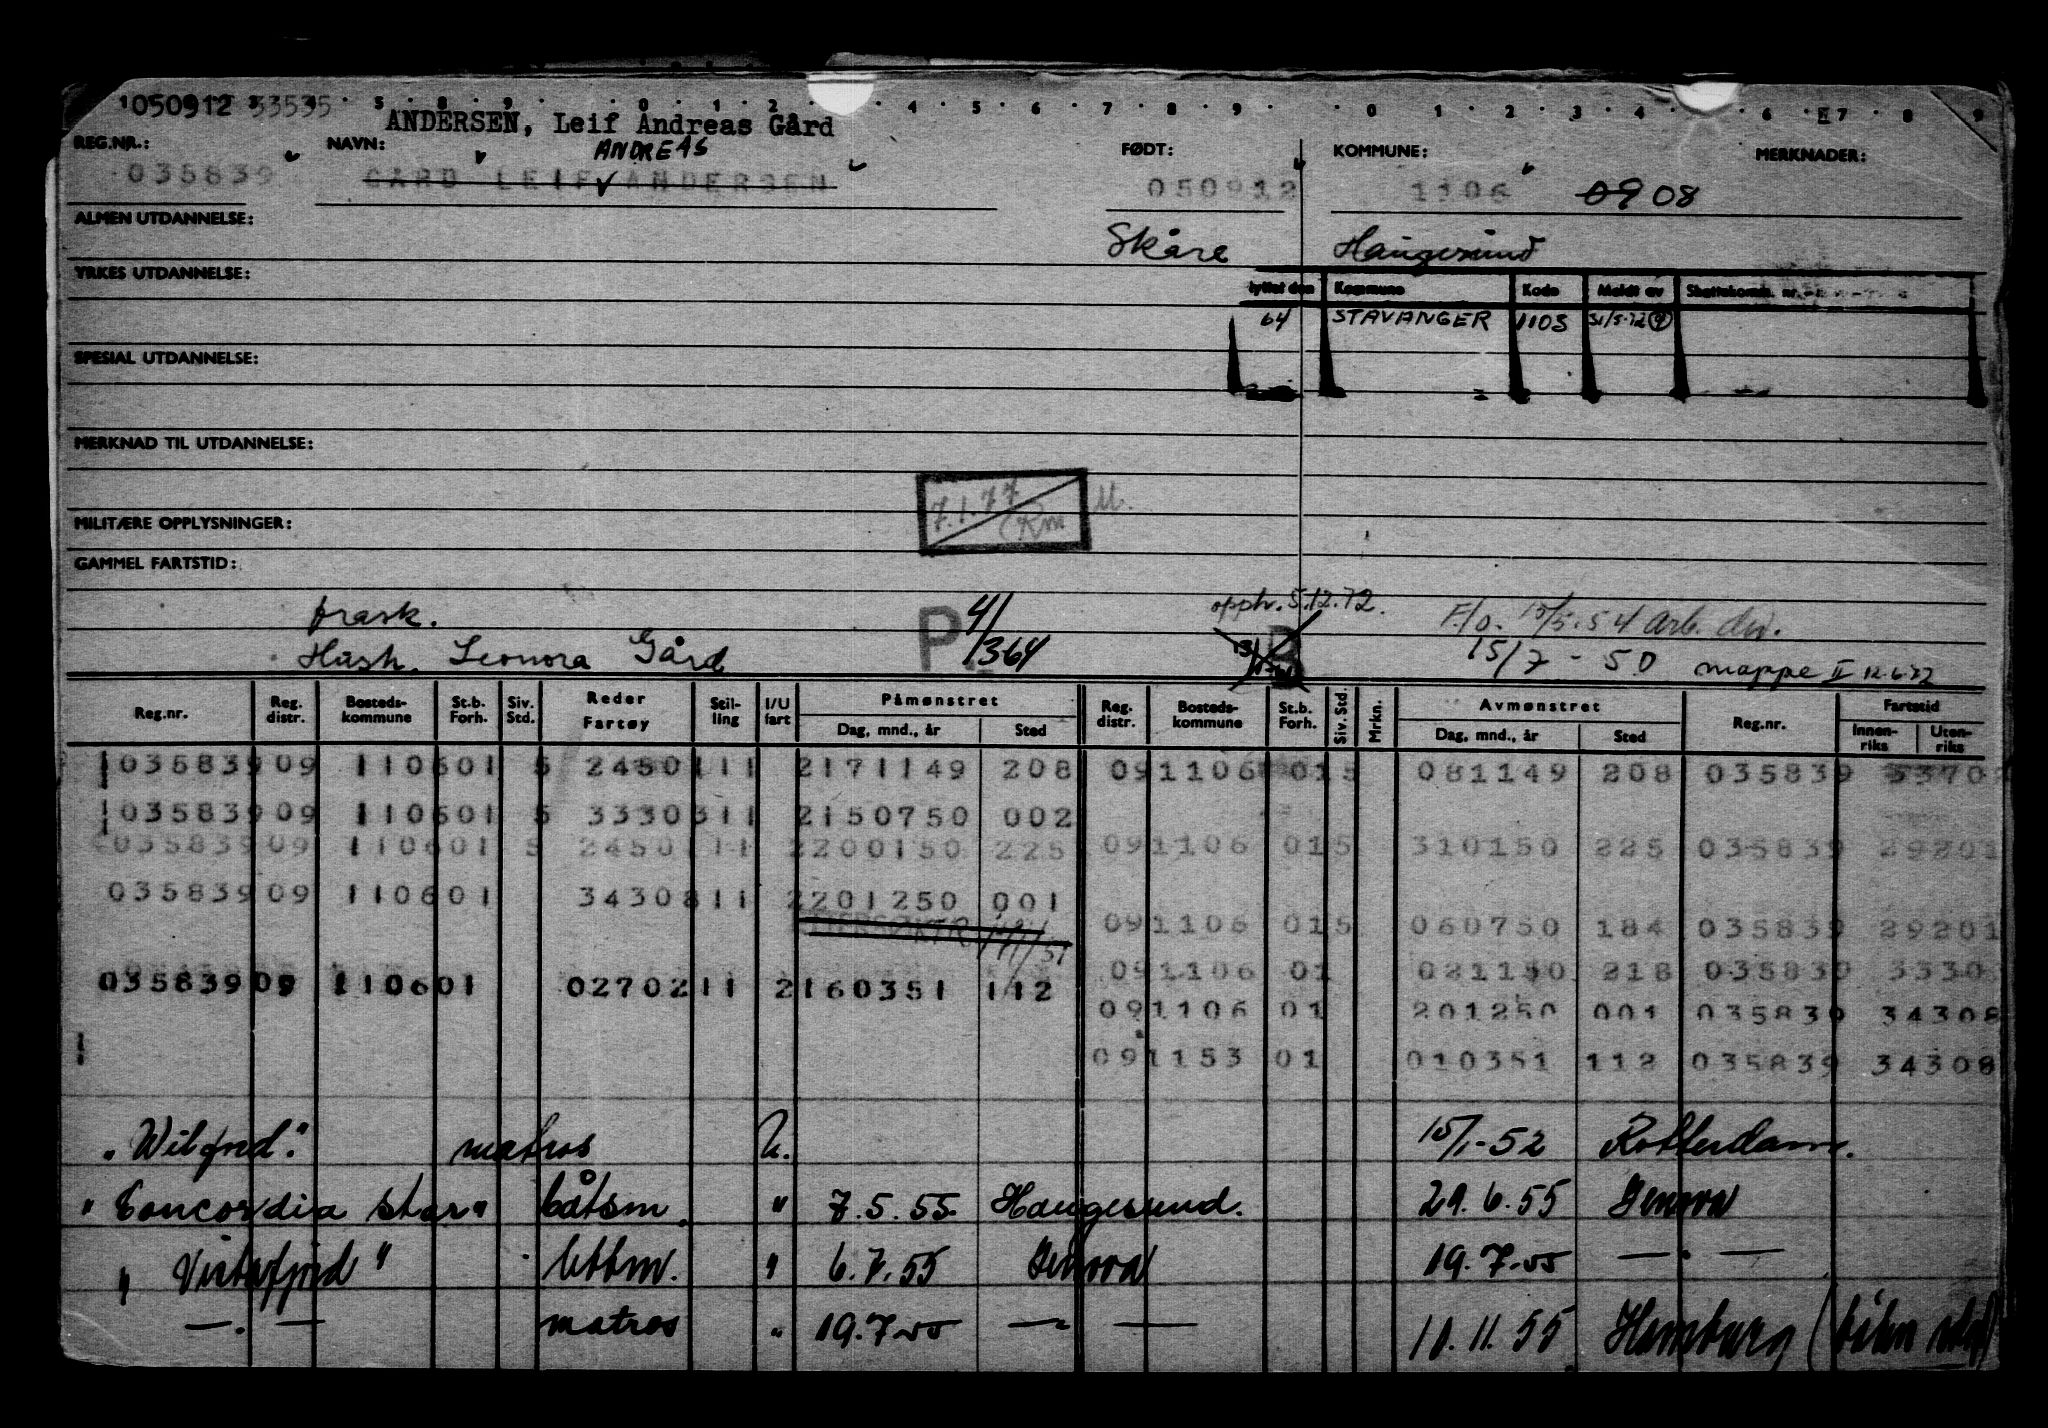 050912 53535
ANDERSEN, Leif Andreas Gård
REG.NR.: NAVN: ANDREAS FØDT: KOMMUNE: MERKNADER:
035839 GARD LEIF ANDERSEN 050912 1106 09 08
ALMEN UTDANNELSE:
Skåre Haugesund
YRKES UTDANNELSE:
lyttet den Kommune Kode Meldt av Skattekomm. nr.
64 STAVANGER 1103 31/5-72
SPESIAL UTDANNELSE:
MERKNAD TIL UTDANNELSE:
7.1.77 M.
Rm
MILITÆRE OPPLYSNINGER:
GAMMEL FARTSTID:
prask. P 4/1364 opph. 5.12.72. F/o. 15/5.54 Arb. dir.
Hush. Leonora Gård B 15/7 - 50 mappe II 12.6.72
Reg.nr. Reg. distr. Bosteds-kommune St.b. Forh. Siv. Std. Reder Fartøy Stil-ling I/U fart Påmønstret Dag, mnd., år Sted Reg. distr. Bosteds-kommune St.b. Forh. Siv. Std. Mrkn. Avmønstret Dag, mnd., år Sted Reg.nr. Fartstid Innen-riks Uten-riks
035839 09 1106 01 5 2450111 2171149 208 09 1106 01 5 081149 208 035839 3370
035839 09 1106 01 5 3330311 2150750 002
035839 09 1106 01 5 2450111 2200150 225 09 1106 01 5 310150 225 035839 29201
035839 09 1106 01 3430811 2201250 001
09 1106 01 5 060750 184 035839 29201
09 1106 01 021150 218 035839 3330
035839 09 1106 01 0270211 2160351 112
09 1106 01 201250 001 035839 34308
09 1153 01 010351 112 035839 34308
"Wilfred". matros U. 15/1-52 Rotterdam.
"Concordia star" båtsm. " 7.5.55 Haugesund. 29.6.55 Genova
" Vistafjord " lettm. " 6.7.55 Genova 19.7.55 — . —
— . — matros " 19.7.55 — " — 11.11.55 Hamburg